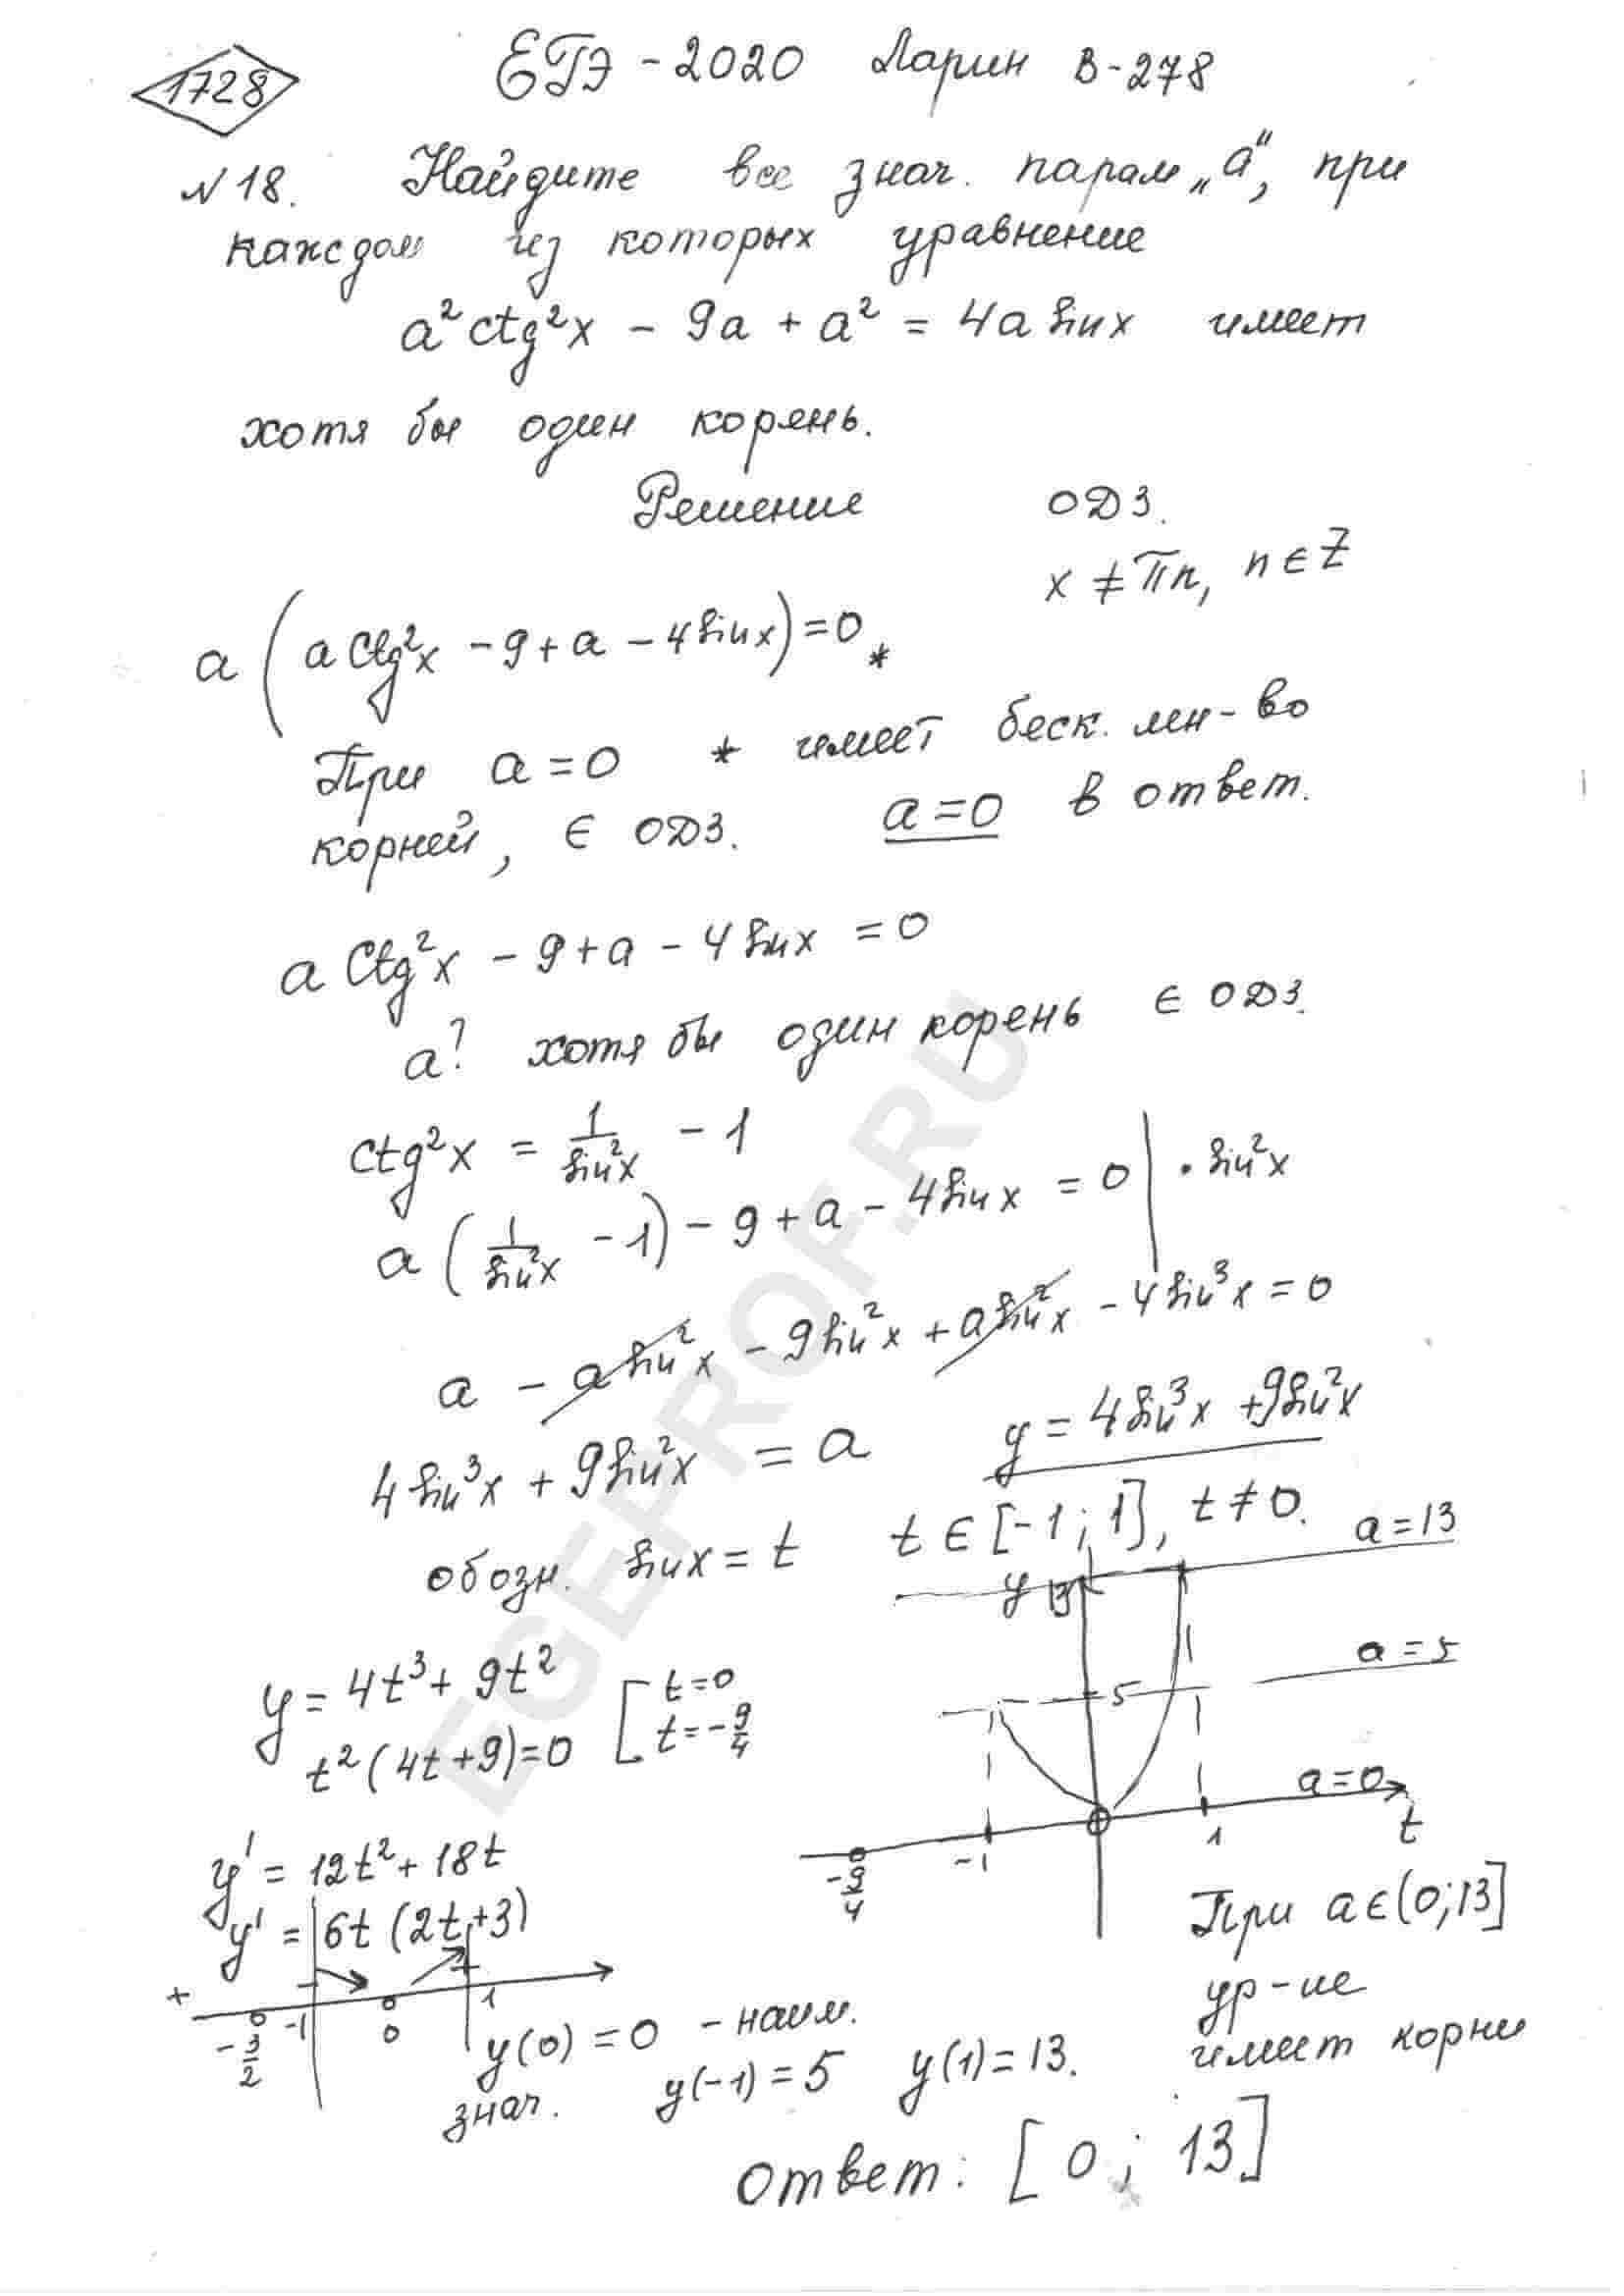 1728
ЕГЭ - 2020 Ларин В-278
N 18. Найдите все знач. парам „а", при
каждом из которых уравнение
a² ctg²x - 9a + a² = 4a sinx имеет
хотя бы один корень.
Решение ОДЗ.
x ≠ πn, n ∈ Z
a (a ctg²x - 9 + a - 4 sinx) = 0 *
При a = 0 * имеет беск. мн-во
корней, ∈ ОДЗ. a = 0 в ответ.
a ctg²x - 9 + a - 4 sinx = 0
a? хотя бы один корень ∈ ОДЗ.
ctg²x = 1/sin²x - 1
a (1/sin²x - 1) - 9 + a - 4 sinx = 0 | · sin²x
a - a sin²x - 9 sin²x + a sin²x - 4 sin³x = 0
4 sin³x + 9 sin²x = a y = 4 sin³x + 9 sin²x
обозн. sinx = t t ∈ [-1; 1], t ≠ 0.
a = 13
y 13
a = 5
5
y = 4t³ + 9t²
t² (4t + 9) = 0 [ t = 0 t = -9/4
a = 0
t
-9/4 -1 1
y' = 12t² + 18t
y' = 6t (2t + 3)
+ - +
-3/2 -1 0 1
При a ∈ (0; 13]
ур-ие
имеет корни
y(0) = 0 - наим.
знач. y(-1) = 5 y(1) = 13.
Ответ: [0; 13]
EGEPROF.RU